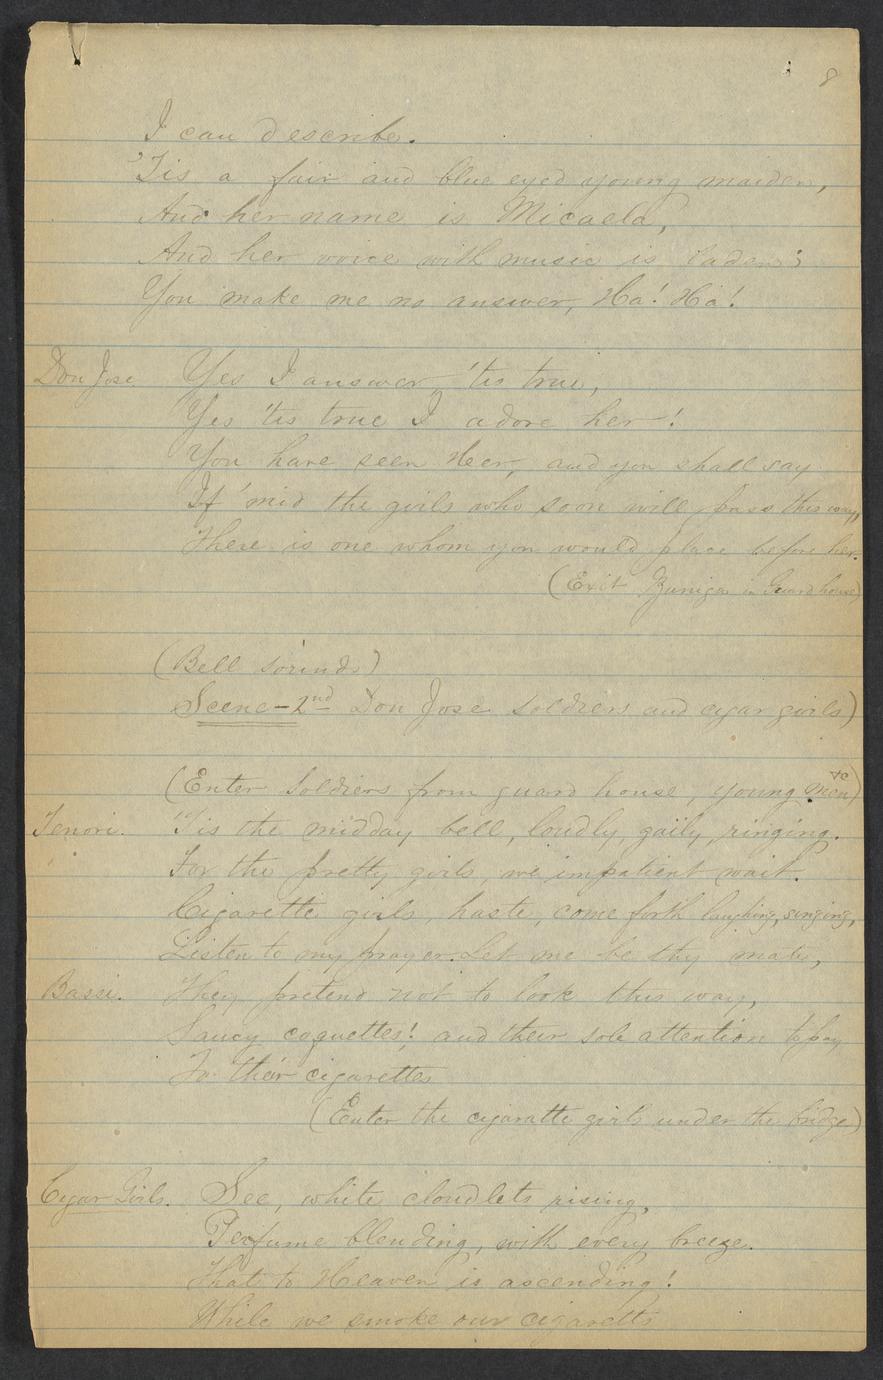 8
I can describe.
'Tis a fair and blue eyed young maiden,
And her name is Micaela,
And her voice with music is laden;
You make me no answer, Ha! Ha!
Don Jose. Yes I answer 'tis true,
Yes 'tis true I adore her!
You have seen Heer, and you shall say
If 'mid the girls who soon will pass this way,
There is one whom you would place before her.
(Exit Zuniga in Guard house)
(Bell sounds)
Scene-2nd Don Jose soldiers and cigar girls)
(Enter Soldiers from guard house, young men &c)
Tenori. 'Tis the midday bell, loudly, gaily, ringing.
For the pretty girls, we impatient wait.
Cigarette girls, haste, come forth laughing, singing,
Listen to my prayer. Let me be thy mate,
Bassi. They pretend not to look this way,
Saucy coquettes! and their sole attention to pay
To their cigarettes
(Enter the cigaratte girls under the bridge)
Cigar Girls. See, white cloudlets rising,
Perfume blending, with every breeze.
That to Heaven is ascending!
While we smoke our cigaretts